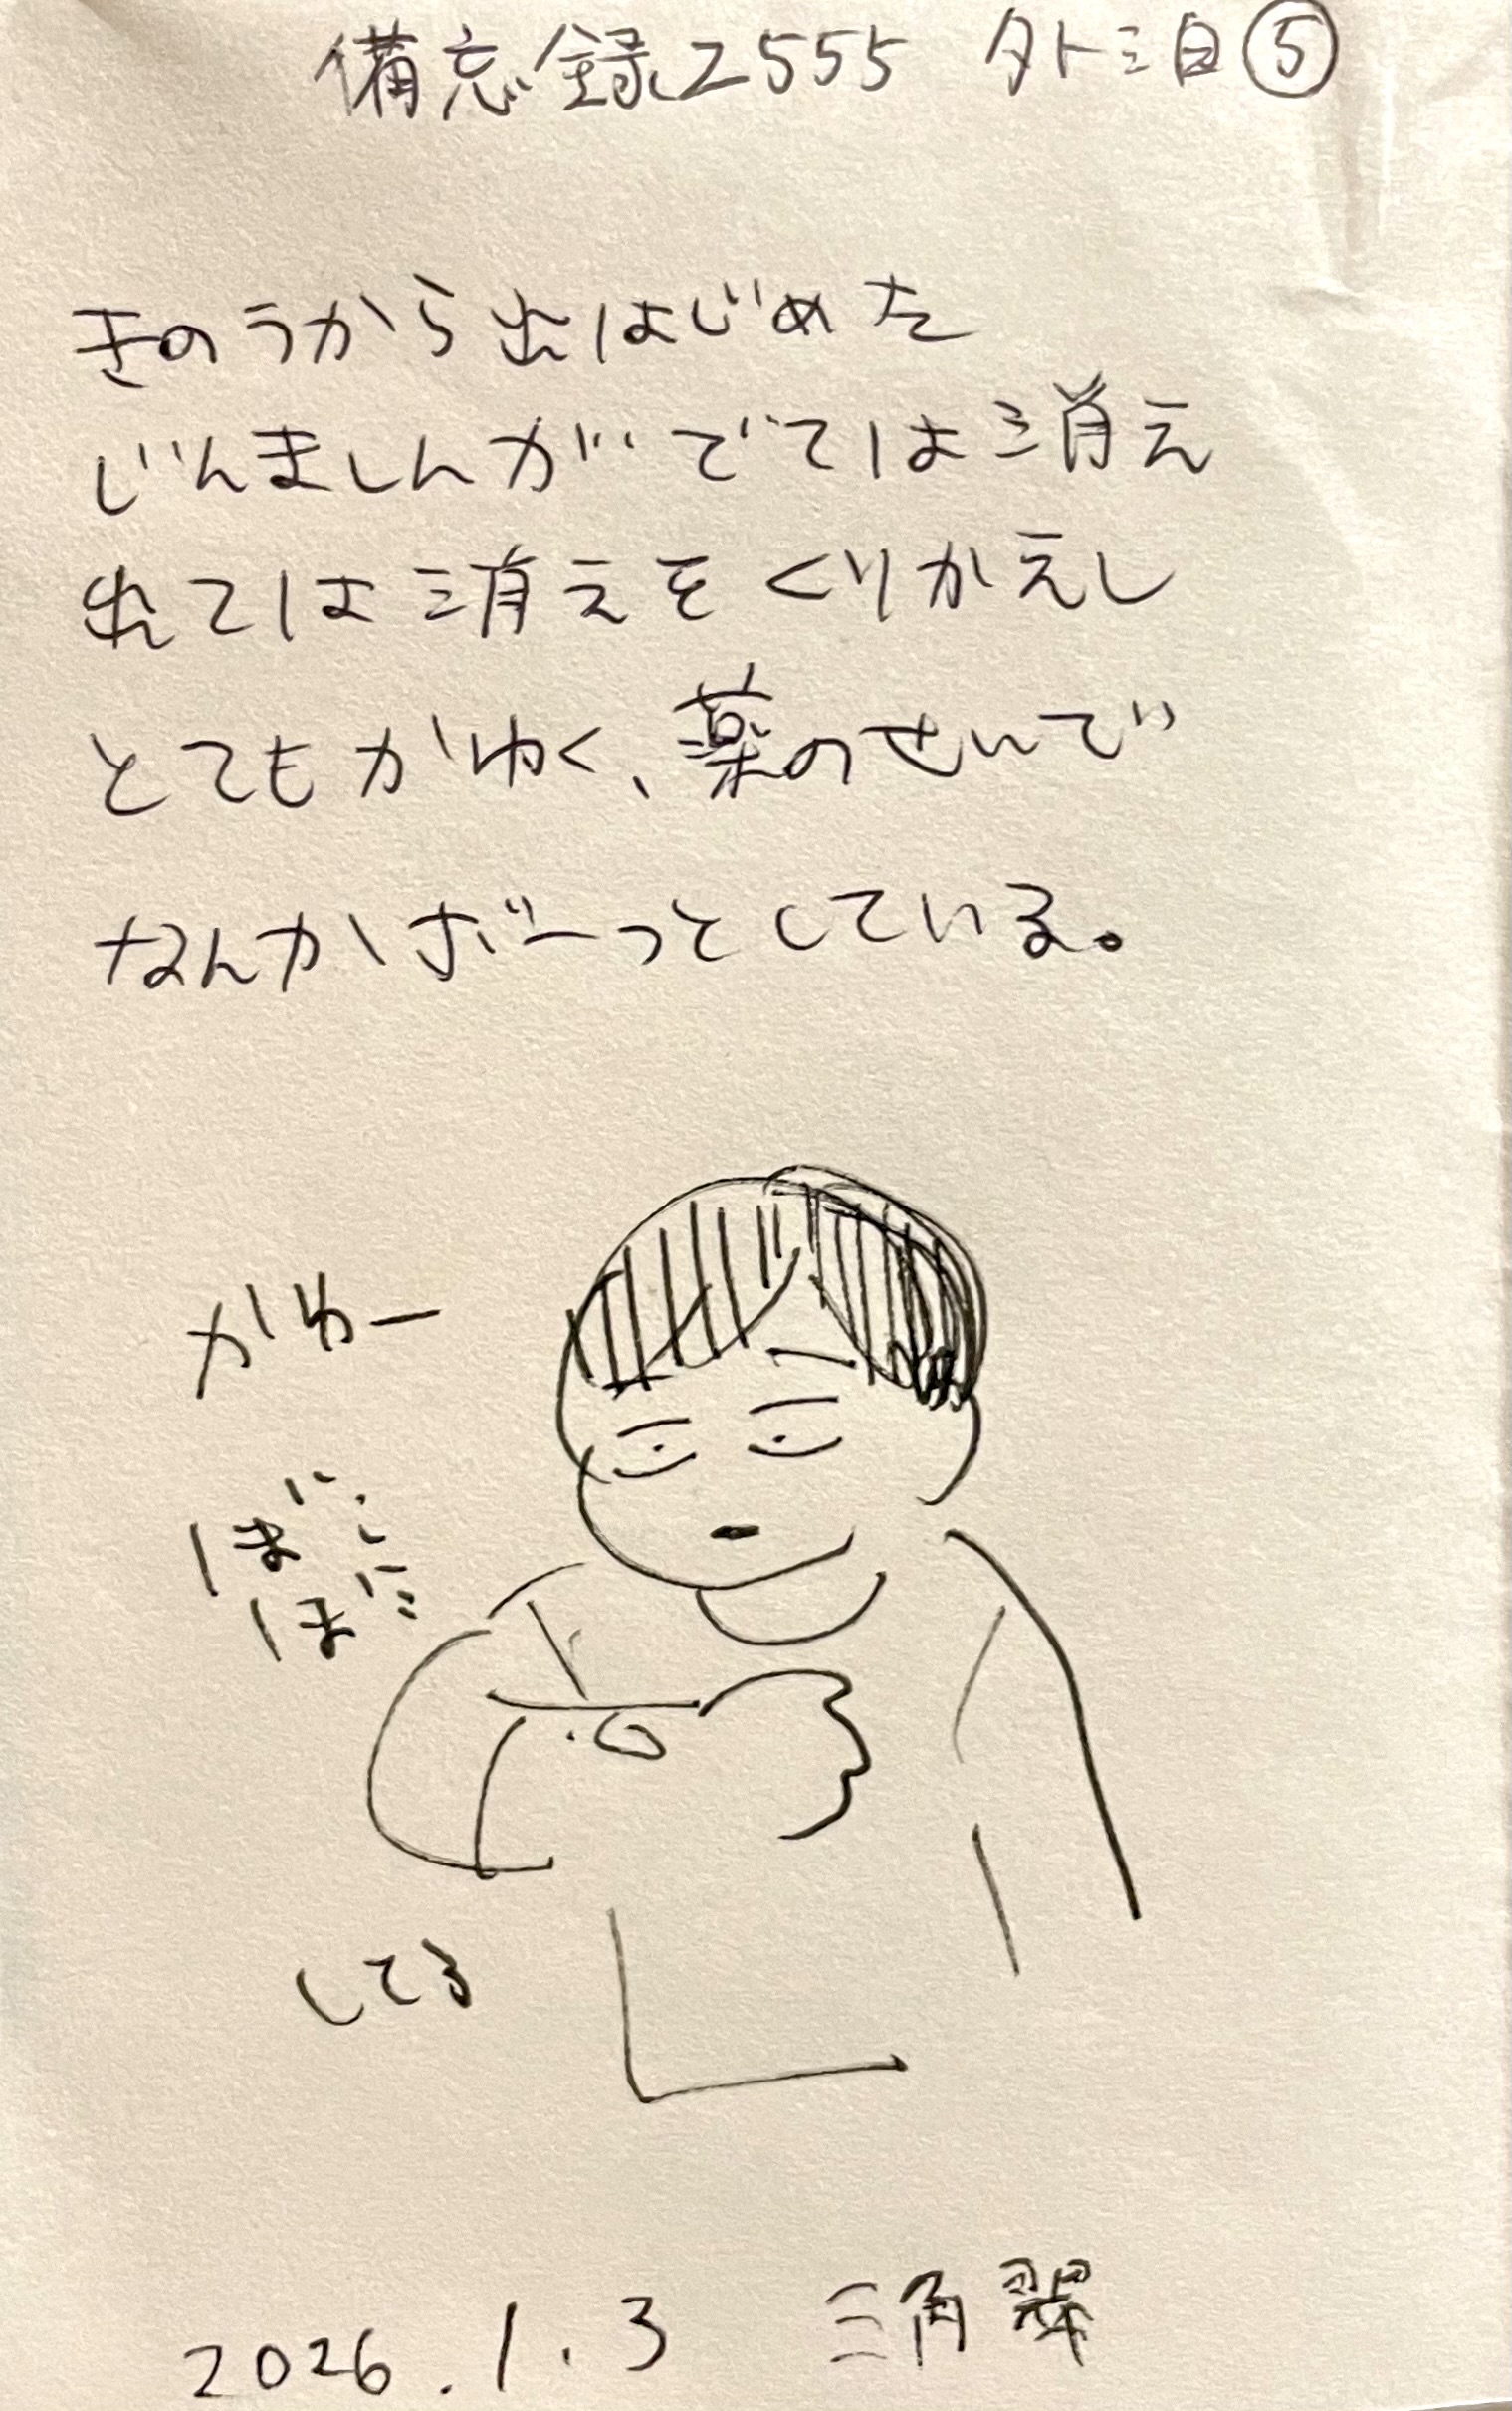 備忘録2555 外泊⑤
きのうから出はじめた
じんましんがでては消え
出ては消えをくりかえし
とてもかゆく、薬のせいで
なんかボーっとしている。
かゆー
ぼ
ぼ
してる
2026.1.3 三角翠